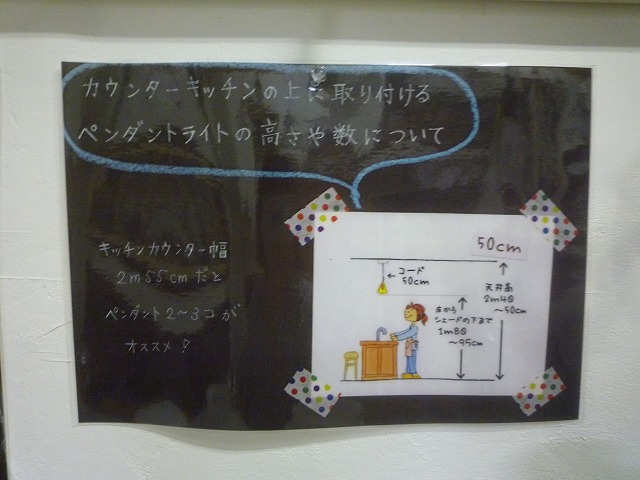 カウンターキッチンの上に取り付ける
ペンダントライトの高さや数について
キッチンカウンター幅
2m55cmだと
ペンダント2〜3コが
オススメ!
50cm
←コード
50cm
天井高
2m40
〜50cm
床から
シェードの下まで
1m80
〜95cm